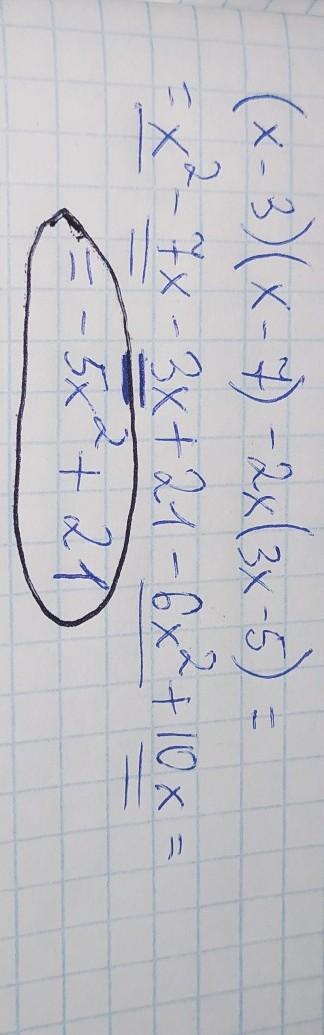 (x-3)(x-7)-2x(3x-5)=
=x²-7x-3x+21-6x²+10x=
=-5x²+21